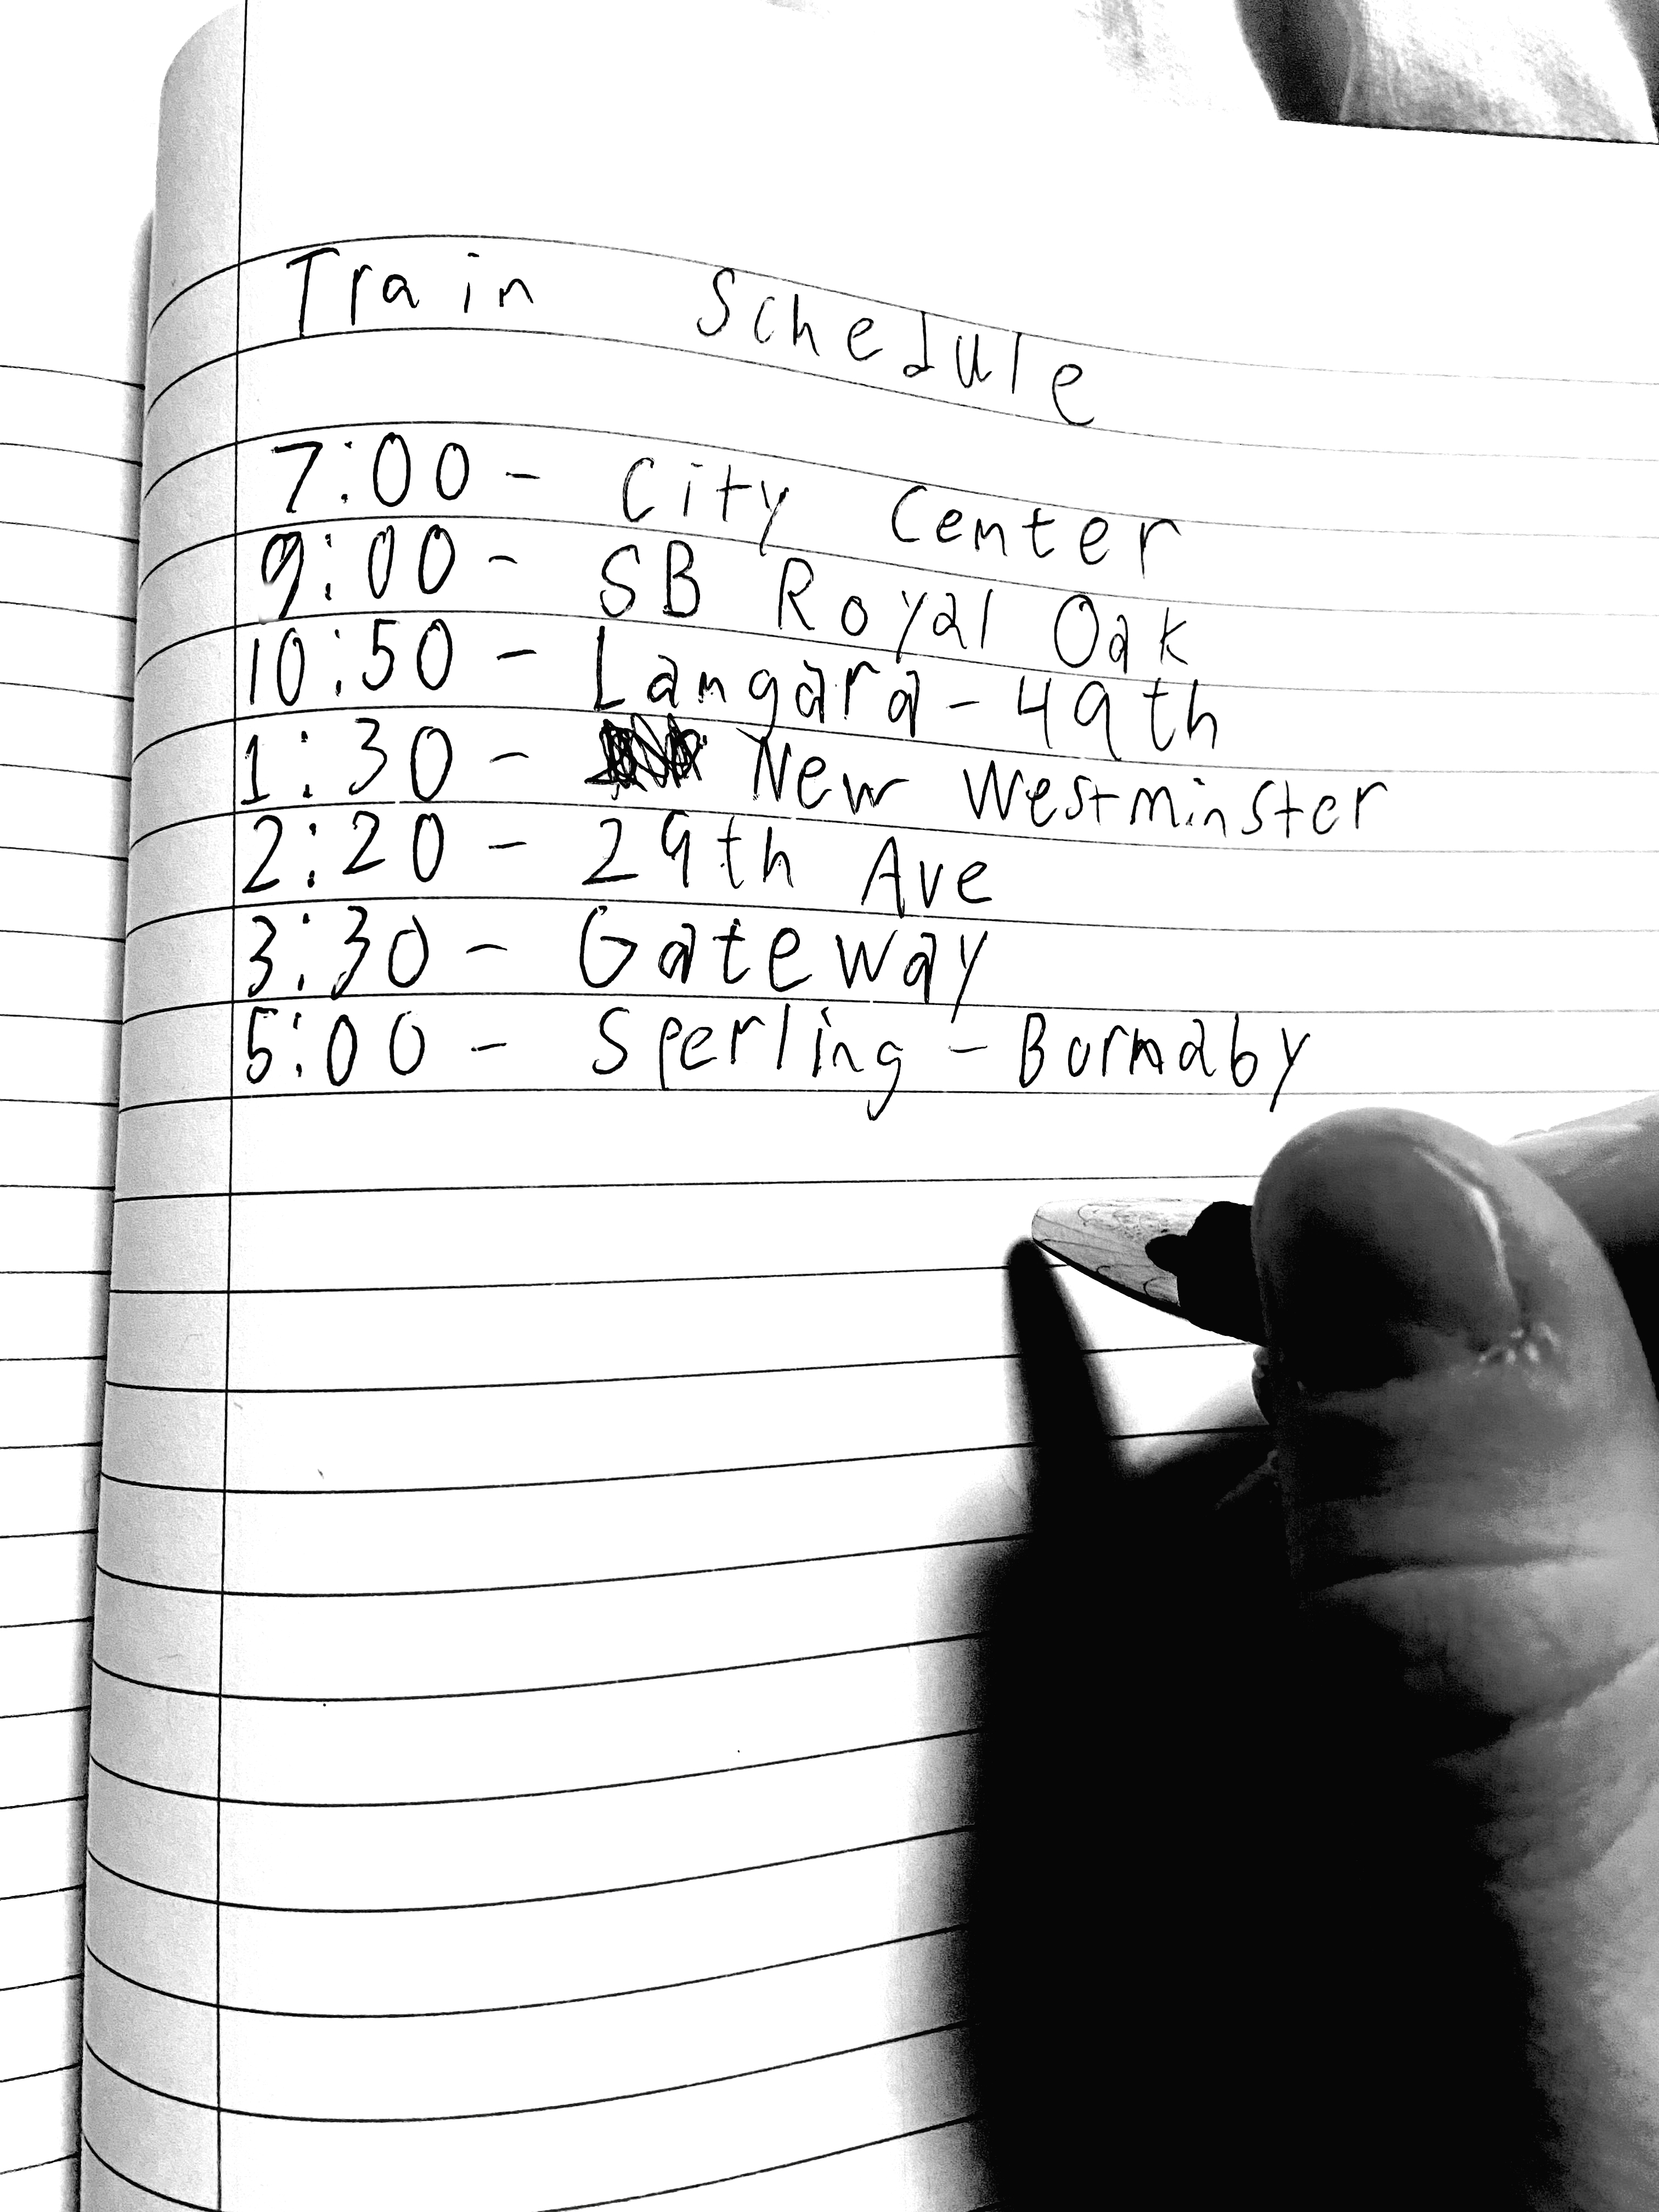 Train Schedule
7:00 - City Center
9:00 - SB Royal Oak
10:50 - Langara - 49th
1:30 - New Westminster
2:20 - 29th Ave
3:30 - Gateway
5:00 - Sperling - Burnaby